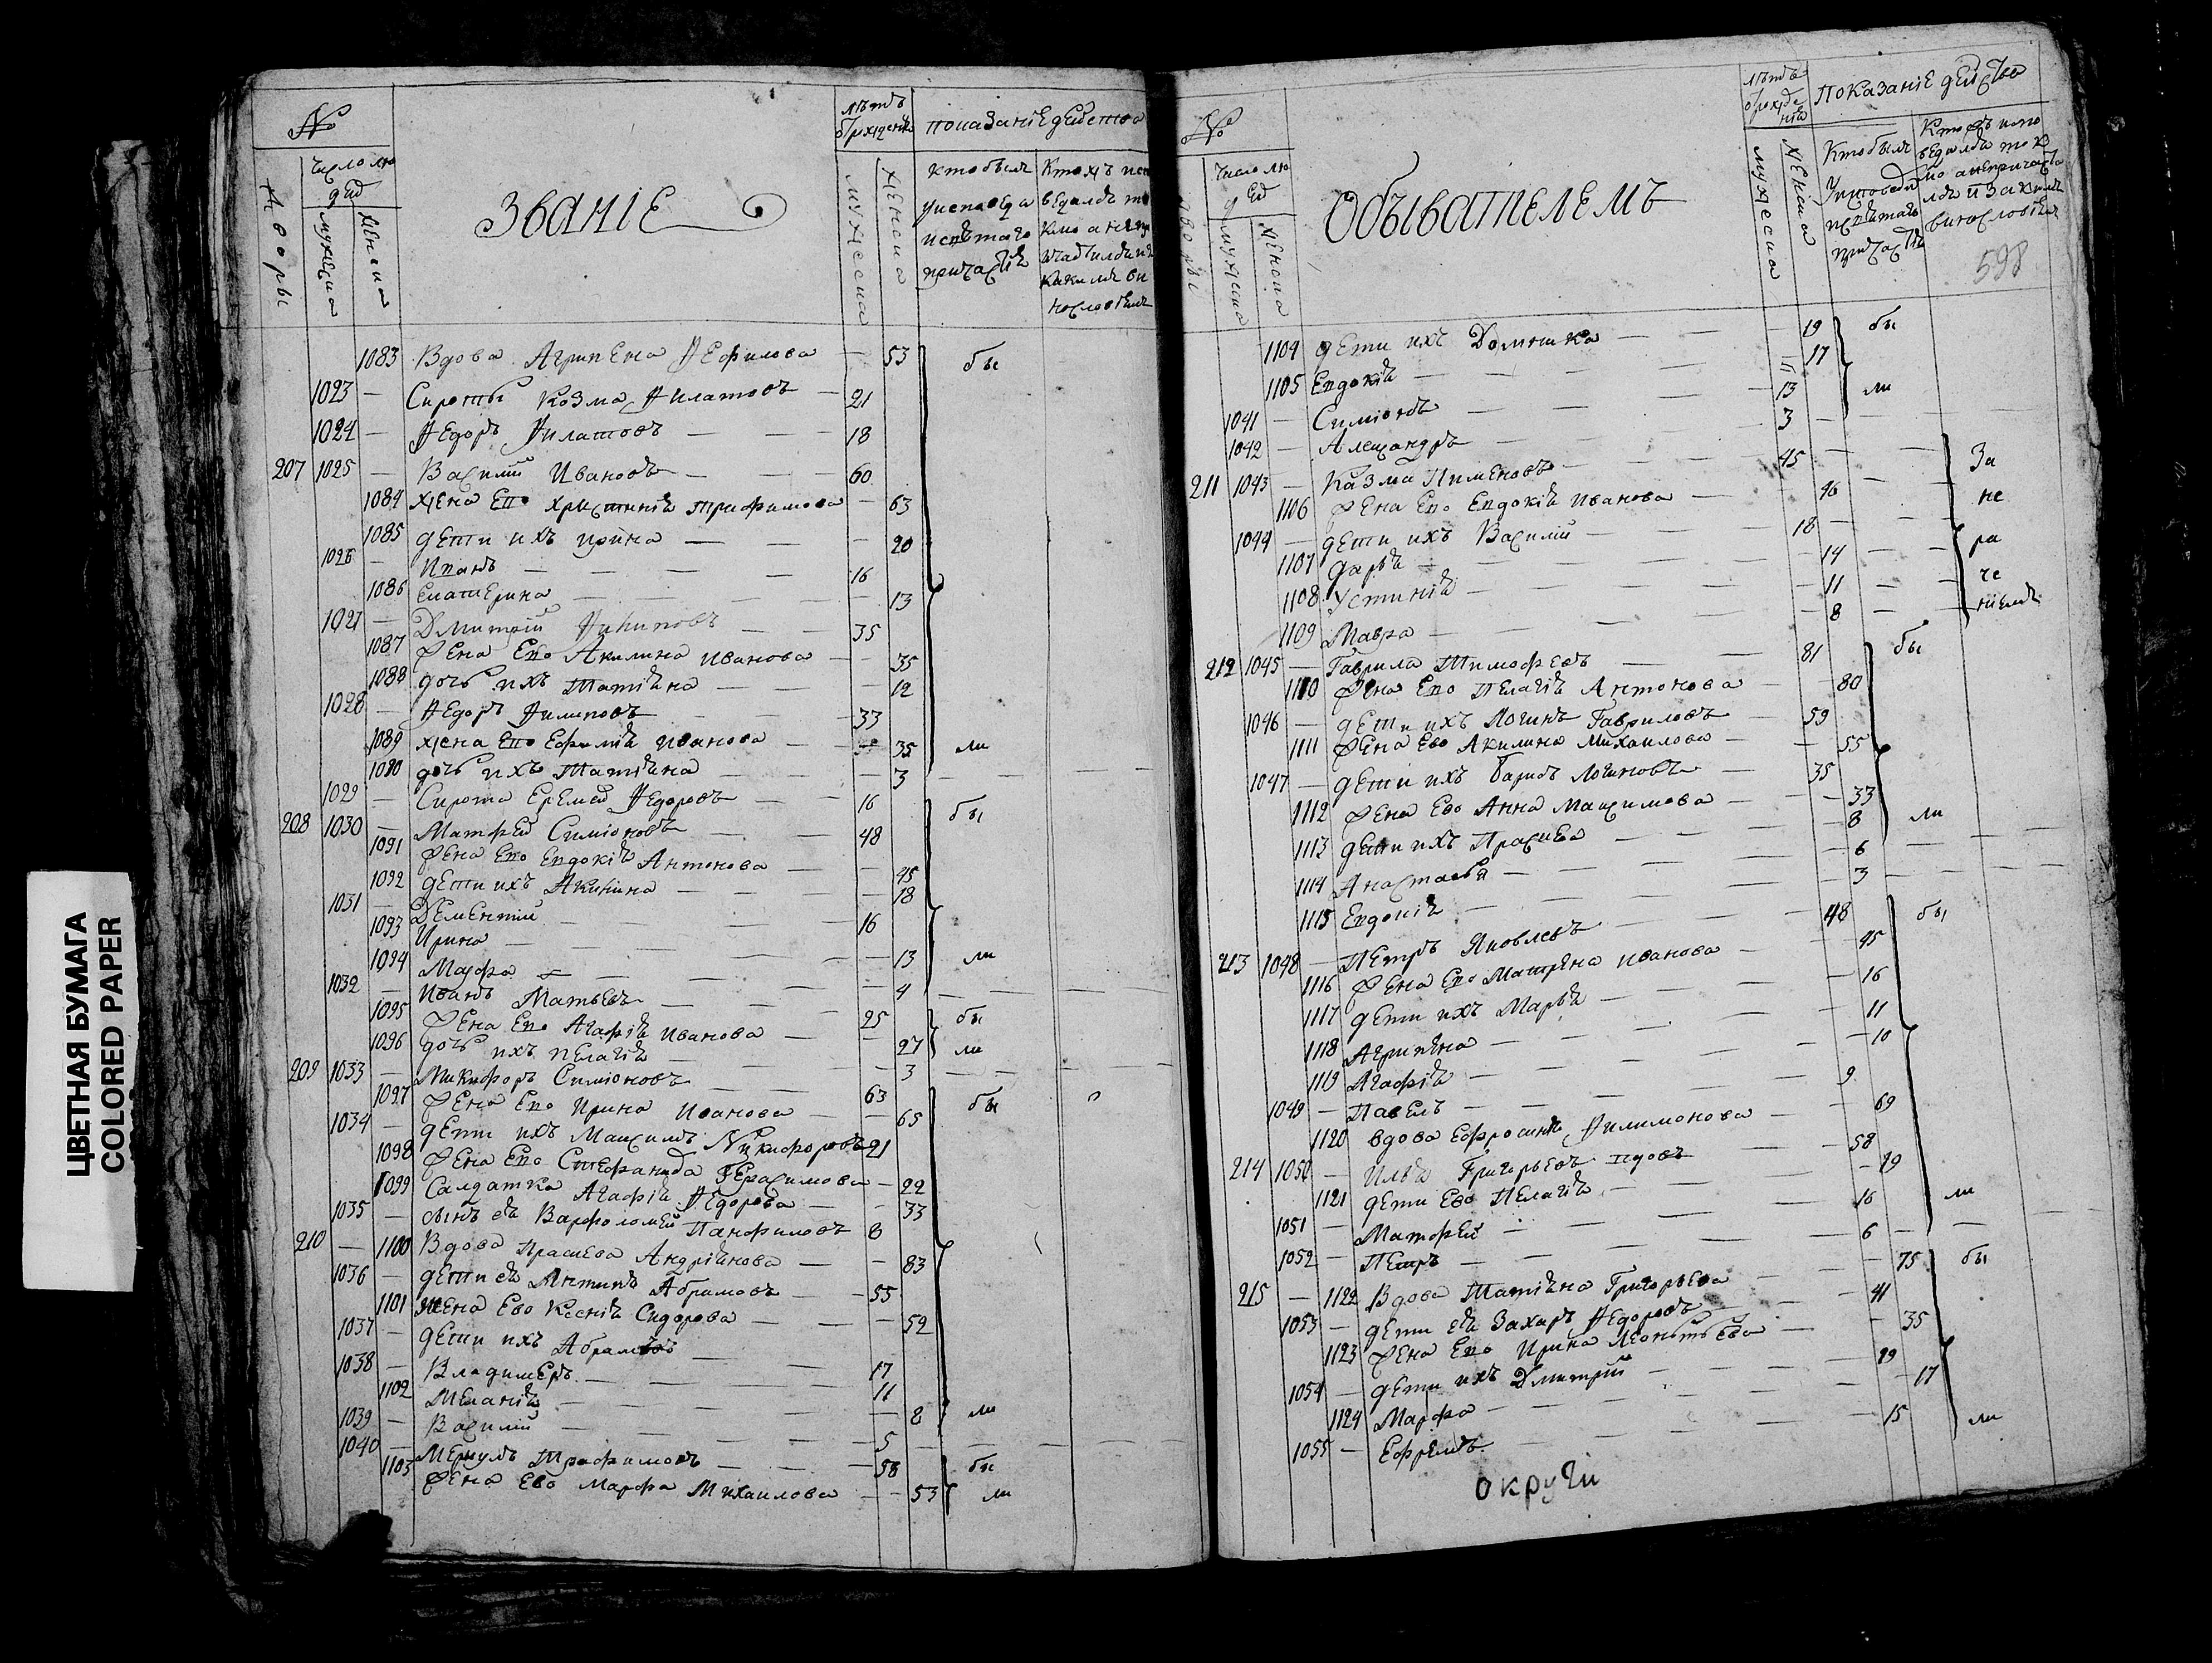 ЦВЕТНАЯ БУМАГА
COLORED PAPER
№
Званіе
лѣтъ
показаніе
число лю
дей
1083 Вдова Агрипена 53 бы
1023 — Сироты Козма Филатовъ — 21
1024 — Федоръ Филатовъ — — 18
207 1025 — Василій Ивановъ — 60
1084 жена Ево Християнія Трифимова — 63
1085 дети ихъ Ирина — — 20
1026 — Иванъ — 16
1086 Екатерина — 13
1027 — Дмитрій Филиповъ — 35
1087 Жена Ево Акилина Иванова — 35
1088 дочь ихъ Татіяна — 12
1028 — Федоръ Филиповъ — 33
1089 жена Ево Ефимія Иванова — 35 ли
1090 дочь ихъ Татіяна — 3
1029 — Сирота Еремей Федоровъ — 16 бы
208 1030 — Матфей Симіоновъ — 48
1091 Жена Ево Евдокія Антонова — 45
1092 дети ихъ Акилина — 18
1031 — Дементій — 16
1093 Ирина — 13 ли
1094 Марфа — 4
1032 — Иванъ Матвѣевъ — 25 бы
1095 Жена Ево Агафія Иванова — 27 ли
1096 дочь ихъ Пелагія — 3
209 1033 — Микифоръ Симіоновъ — 63 бы
1097 Жена Ево Ирина Иванова — 65
1034 — дети ихъ Максимъ Никифоровъ 21
1098 Жена Ево Стефанида Герасимова — 22
1099 Салдатка Агафія Федорова — 33
1035 — сынъ ея Варфоломей Панфиловъ 8
210 — 1100 Вдова Прасковя Андріянова — 83
1036 — дети ея Антипъ Абрамовъ — 55
1101 Жена Ево Ксенія Сидорова — 52
1037 — дети ихъ Абрамъ — 17
1038 — Владимеръ — 11
1102 Меланія — 8 ли
1039 — Василій — 5
1040 — Меркулъ Трофимовъ — 58 бы
1103 Жена Ево Марфа Михаилова — 53 ли
№
Обывателемъ
лѣтъ
Показаніе действа
число лю
дей
598
1104 дети ихъ Домника — 19 бы
1105 Евдокія — 17
1041 — Симіонъ — 13 ли
1042 — Александръ — 3
211 1043 — Казма Пименовъ — 45 За
1106 Жена Ево Евдокія Иванова — 46 не
1044 — дети ихъ Василій — 18
1107 Дарья — 14 ра
1108 Устинія — 11 че
1109 Мавра — 8 ніемъ
212 1045 — Гаврила Тимофеевъ — 81 бы
1110 Жена Ево Пелагія Антонова — 80
1046 — дети ихъ Логинъ Гавриловъ — 59
1111 Жена Ево Акилина Михаилова — 55
1047 — дети ихъ Борисъ Логиновъ — 35
1112 Жена Ево Анна Максимова — 33
1113 дети ихъ Праскева — 8 ли
1114 Анастасья — 6
1115 Евдокія — 3
213 1048 — Петръ Яковлевъ — 48 бы
1116 Жена Ево Матрена Иванова — 45
1117 дети ихъ Марья — 16
1118 Агрипена — 11
1119 Агафія — 10
1049 — Павелъ — 9
1120 вдова Ефросинія Филимонова — 69
214 1050 — Илья Григорьевъ вдовъ — 58
1121 дети Ево Пелагія — 19
1051 — Матфей — 16 ли
1052 — Петръ — 6
215 — 1122 Вдова Татіяна Григорьева — 75 бы
1053 — дети ея Захаръ Федоровъ — 41
1123 Жена Ево Ирина Леонтьева — 35
1054 — дети ихъ Дмитрій — 19
1124 Марфа — 17
1055 — Ефремъ — 15 ли
округи